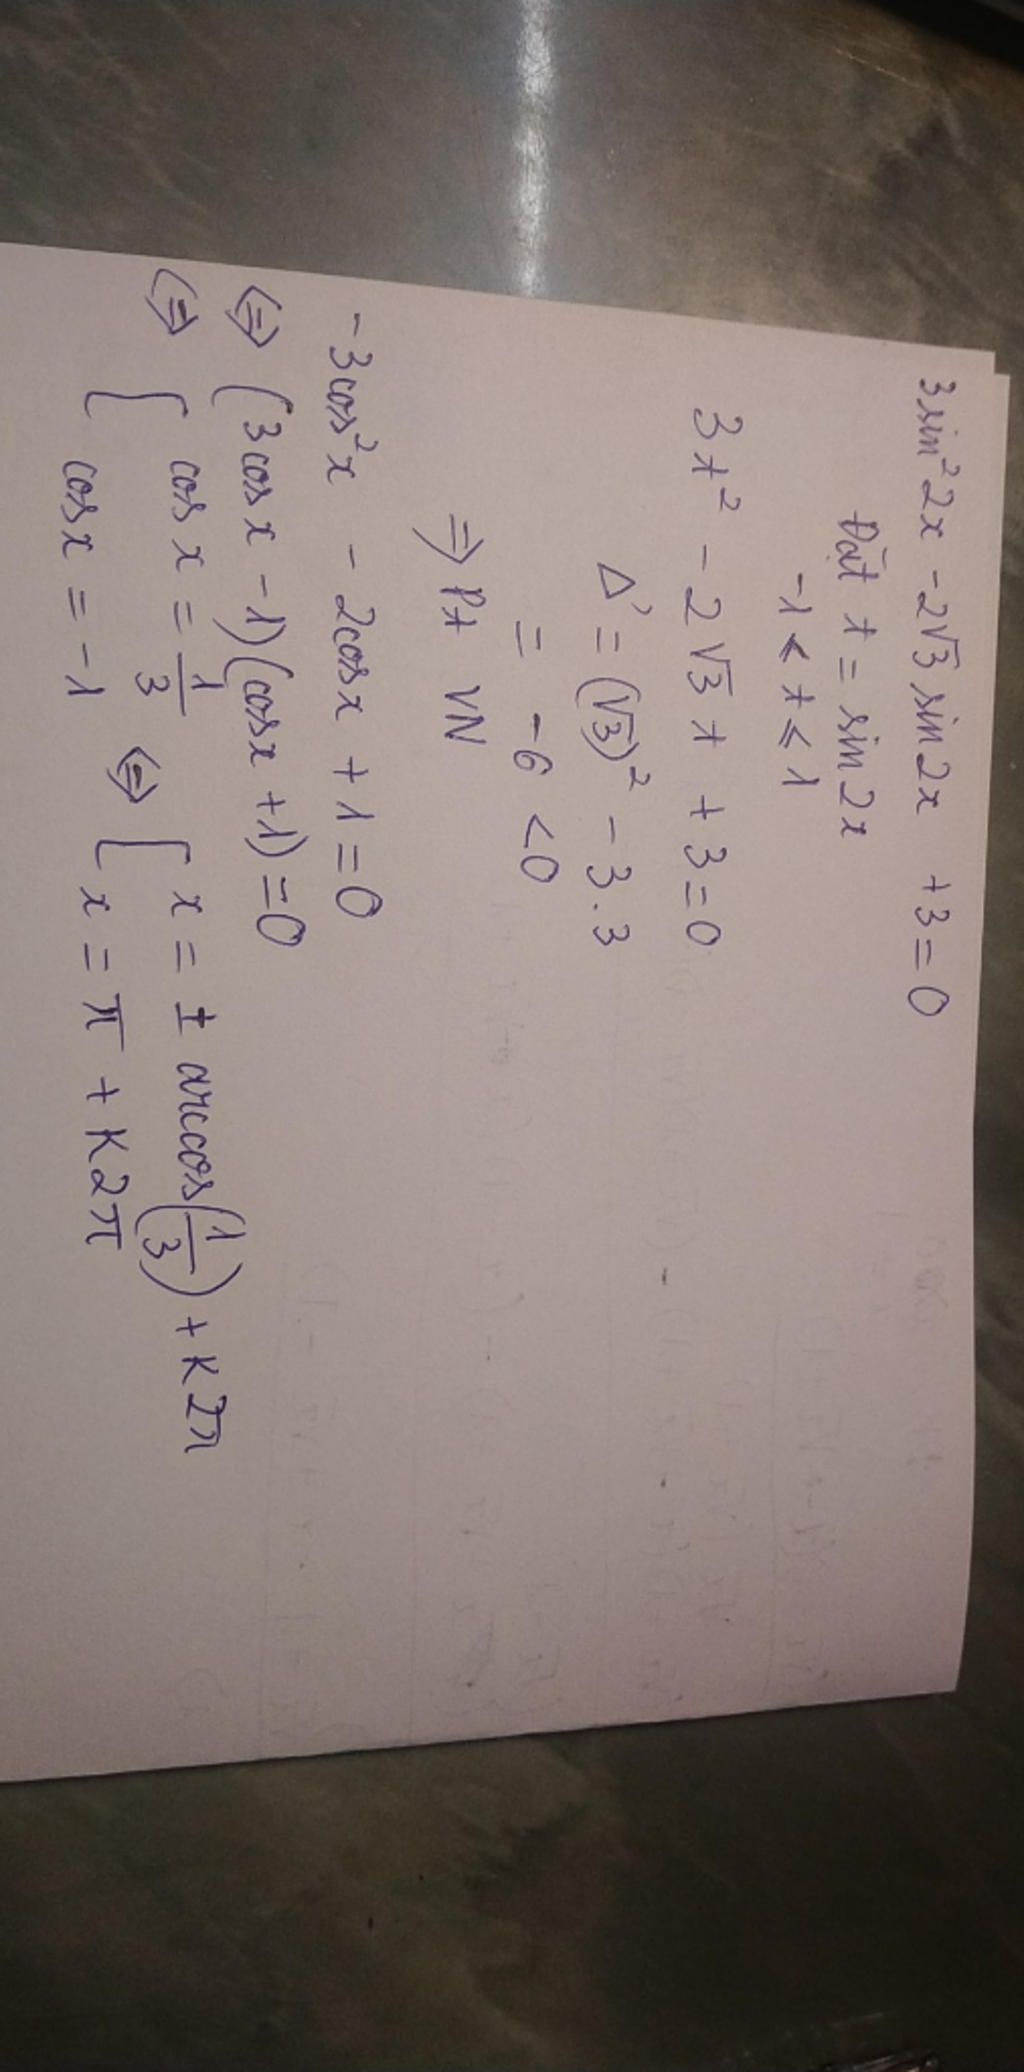 3sin²2x - 2√3 sin2x + 3 = 0
Đặt t = sin2x
-1 ≤ t ≤ 1
3t² - 2√3 t + 3 = 0
Δ' = (√3)² - 3.3
= -6 < 0
⇒ Pt VN
-3cos²x - 2cosx + 1 = 0
⇔ (3cosx - 1)(cosx + 1) = 0
⇔ [ cosx = 1/3 ⇔ [ x = ± arccos(1/3) + k2π
cosx = -1 x = π + k2π